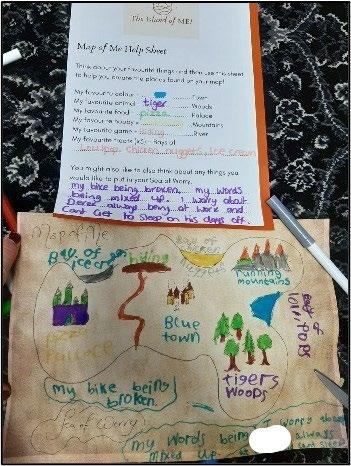 The Island of ME!
Map of Me Help Sheet
Think about your favourite things and then use this sheet
to help you create the places found on your map!
My favourite colour = Town
My favourite animal tiger Woods
My favourite food pizza Palace
My favourite hobby = Mountains
My favourite game = hiding River
My favourite treats (x3) = Bays of
lollipop, chicken nuggets, ice cream
You might also like to also think about any things you
would like to put in your Sea of Worry.
my bike being broken my words
being mixed up. I worry about
Derek always being at work and
Cant Get to Sleep on his days off.
Map of Me
Bay of
icecream
hiding
Bay of
chicken
nuggets
running
mountains
Bay of
lollipops
Pizza
Pallace
Blue
town
tigers
Woods
my bike being
broken.
Sea of Worry
my words being
mixed up
I worry
always
cant sleep